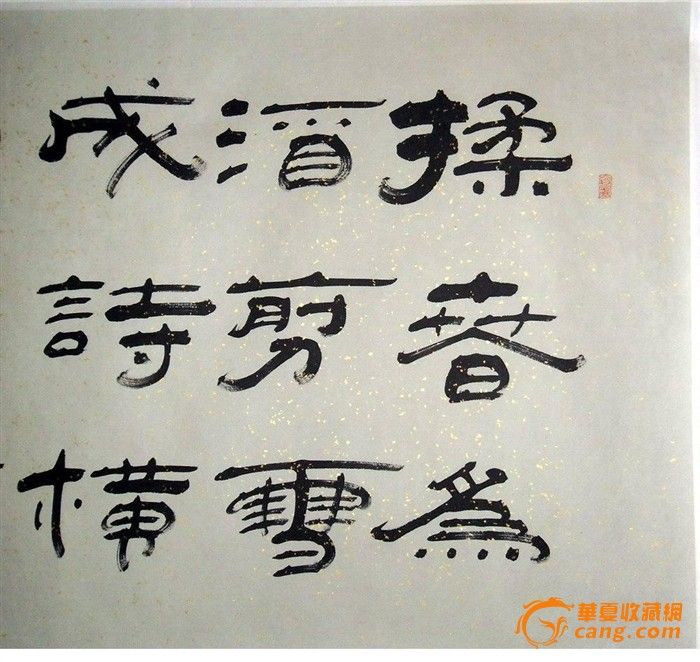 揉春為
酒剪雪
成詩橫
華夏收藏網
cang.com